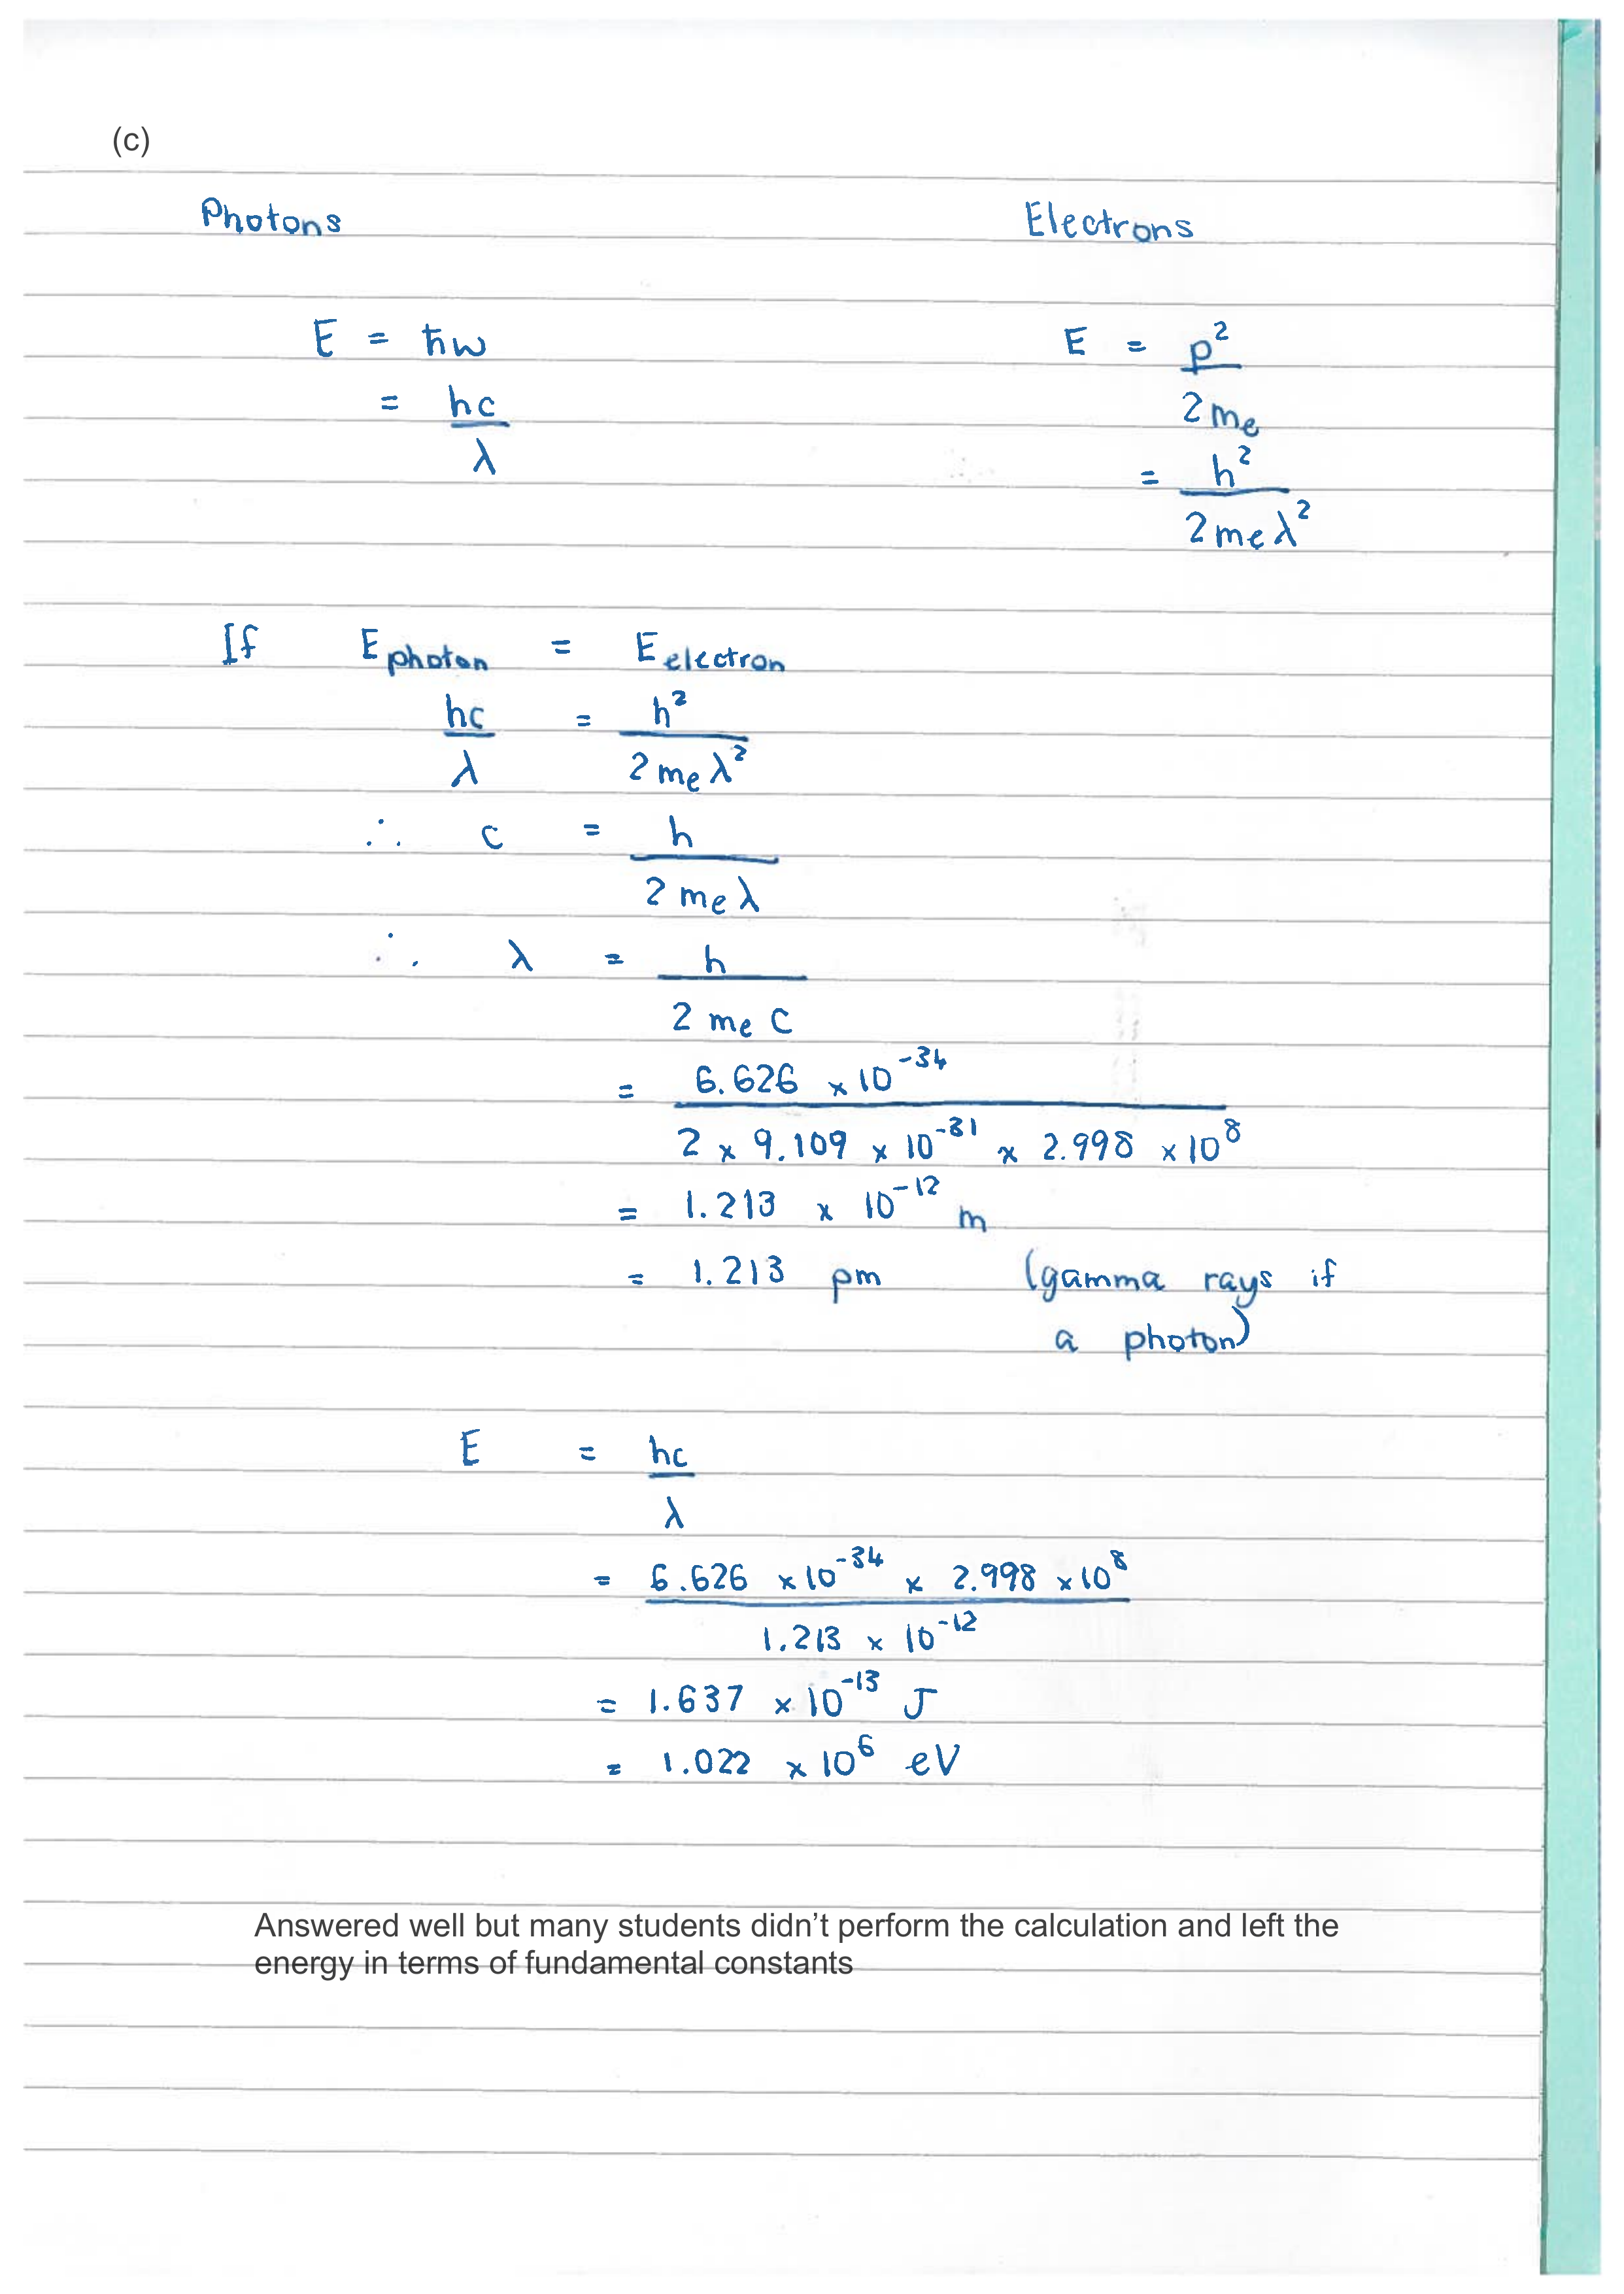 (c)
Photons Electrons
E = ħω E = p²
= hc 2me
λ = h²
2meλ²
If Ephoton = Eelectron
hc = h²
λ 2meλ²
∴ c = h
2meλ
∴ λ = h
2mec
= 6.626 × 10⁻³⁴
2 × 9.109 × 10⁻³¹ × 2.998 × 10⁸
= 1.213 × 10⁻¹² m
= 1.213 pm (gamma rays if
a photon)
E = hc
λ
= 6.626 × 10⁻³⁴ × 2.998 × 10⁸
1.213 × 10⁻¹²
= 1.637 × 10⁻¹³ J
= 1.022 × 10⁶ eV
Answered well but many students didn’t perform the calculation and left the
energy in terms of fundamental constants